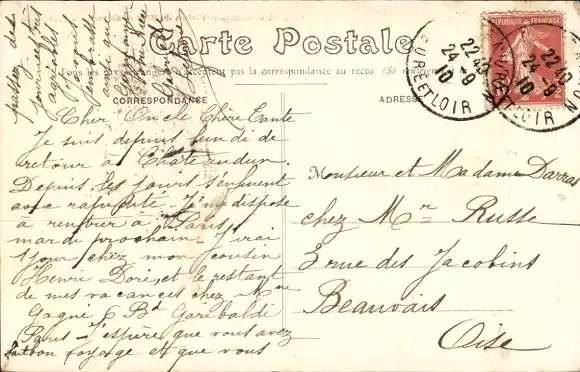 Carte Postale
Tous les pays étrangers n'acceptent pas la correspondance au recto (Se renseigner
CORRESPONDANCE
ADRESSE
RÉPUBLIQUE FRANÇAISE
22 40
24 - 9
10
EURE ET LOIR
22 40
24 - 9
10
EURE ET LOIR
Cher Oncle Chère Tante
Je suis depuis lundi de
retour à Chateaudun.
Depuis, les jours s'enfuient
avec rapidité. Je me dispose
à rentrer à Paris,
mardi prochain. J'irai
1 jour chez mon cousin
Henri Doré, et le restant
de mes vacances chez Mme
Gagné 6 Bd Garibaldi
Paris - J'espère que vous avez
fait bon voyage et que vous
passez des
journées très
agréables
Je vous
embrasse
ainsi que
Monsieur et Madame Darras
chez Mr Russe
3 rue des Jacobins
Beauvais
Oise